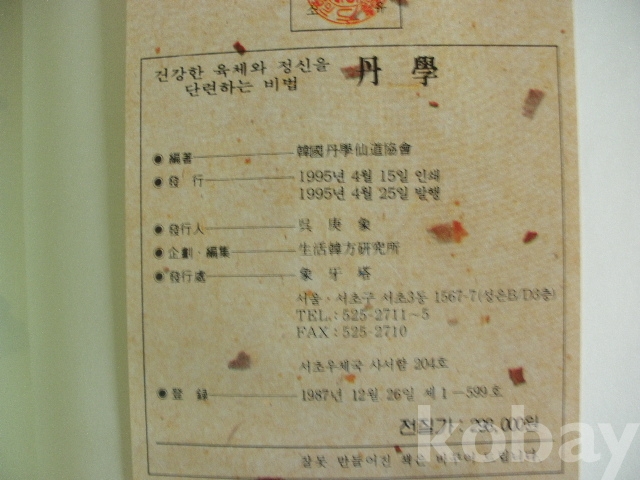 건강한 육체와 정신을
단련하는 비법
丹 學
● 編著 韓國丹學仙道協會
● 發 行 1995년 4월 15일 인쇄
1995년 4월 25일 발행
● 發行人 吳 庚 象
● 企劃·編集 生活韓方研究所
● 發行處 象 牙 塔
서울·서초구 서초3동 1567-7(성은B/D3층)
TEL.: 525-2711~5
FAX : 525-2710
서초우체국 사서함 204호
● 登 録 1987년 12월 26일 제 1-599호
전질가 : 298,000원
잘못 만들어진 책은 바꾸어 드립니다
kobay